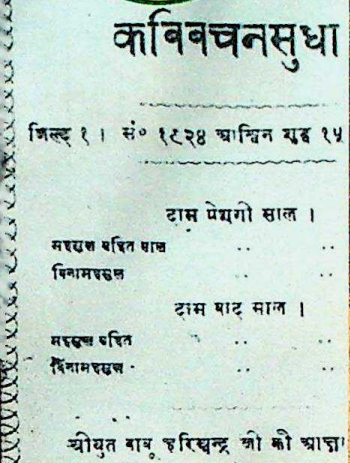 कबिबचनसुधा
जिल्द १ । सं० १९२४ आश्विन शुद्ध १५
दाम पेशगी साल ।
महसूल सहित साल .. ..
बिनामहसूल .. ..
दाम बाद साल ।
महसूल सहित .. ..
बिनामहसूल .. ..
श्रीयुत बाबू हरिश्चन्द्र जी की आज्ञा